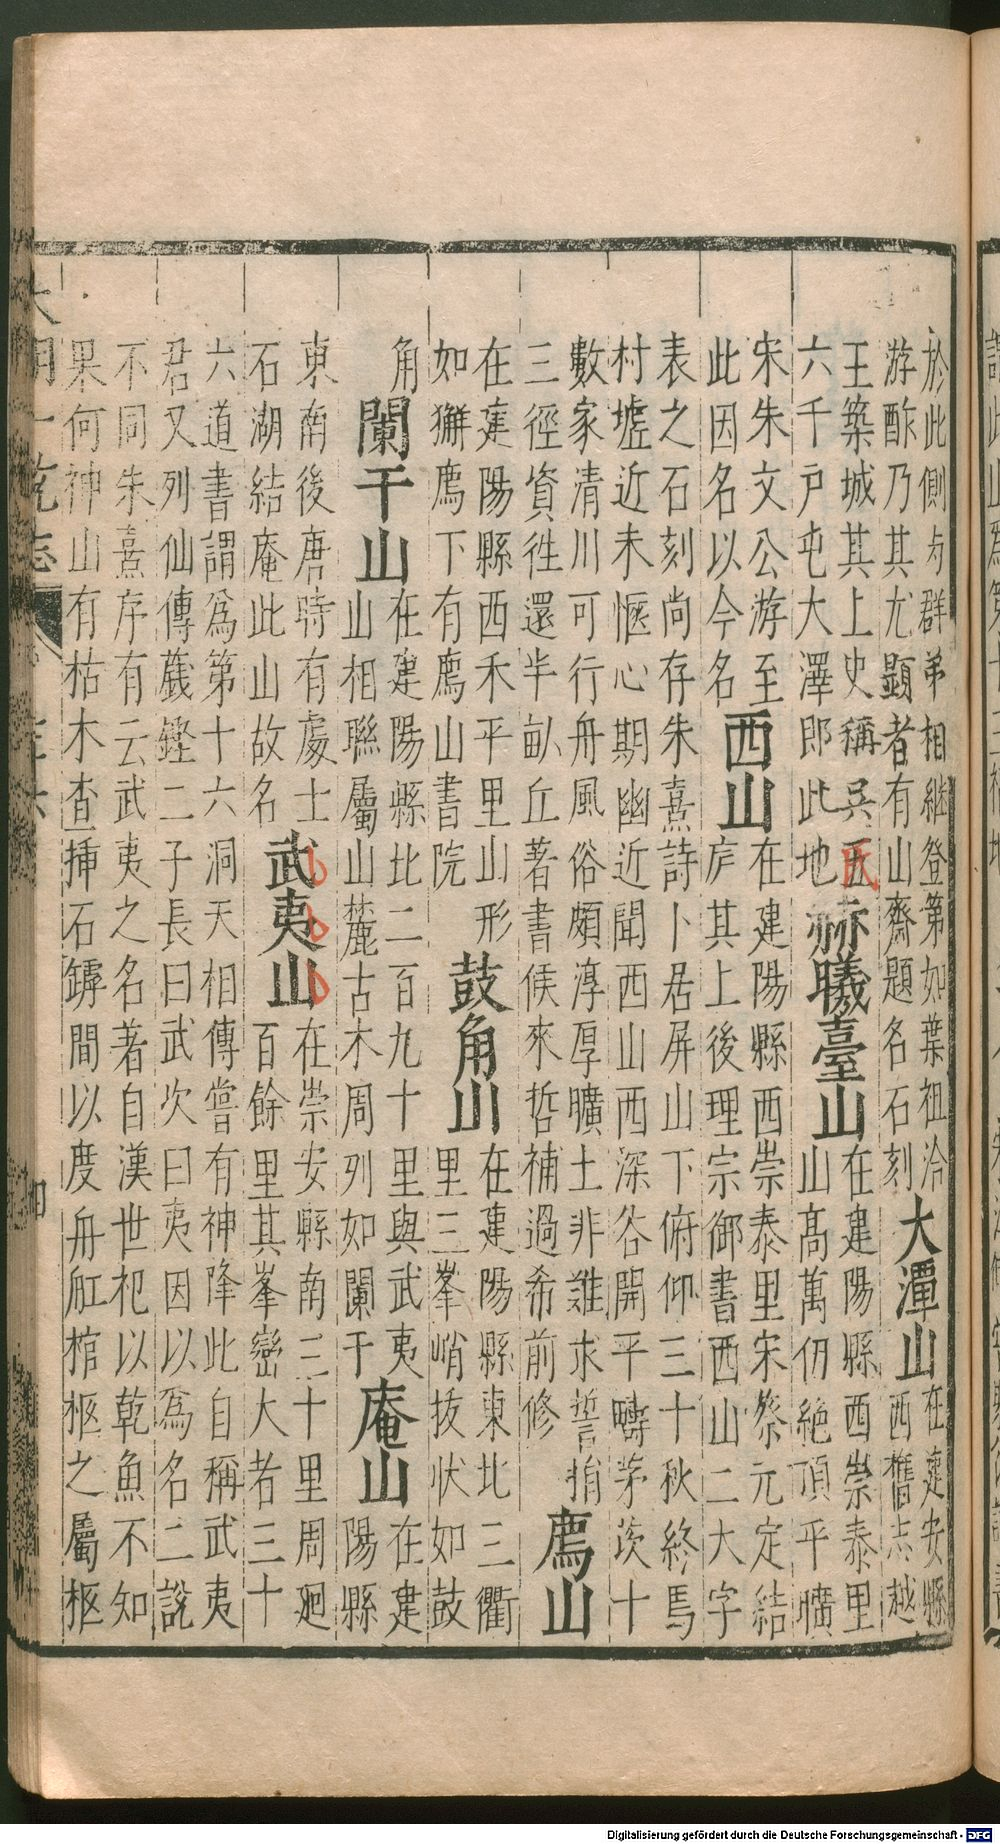 於此側与群弟相継登第如葉祖洽
游酢乃其尤顯者有山齋題名石刻
大潭山
在建安縣
西舊志越
王築城其上史稱吳王氏
六千戸屯大澤郎此地
赫曦臺山
在建陽縣西崇泰里
山髙萬仞絶頂平曠
宋朱文公游至
此因名以今名
西山
在建陽縣西崇泰里宋蔡元定結
庐其上後理宗御書西山二大字
表之石刻尚存朱熹詩卜居屏山下俯仰三十秋終焉
村墟近未愜心期幽近聞西山西深谷開平疇茅茨十
數家清川可行舟風俗頗淳厚曠土非難求誓捐
三徑資徃還半畆丘著書俟來哲補過希前修
廌山
在建陽縣西禾平里山形
如獬廌下有廌山書院
鼓角山
在建陽縣東北三衢
里三峯峭抜状如鼓
角
闌干山
在建陽縣北二百九十里與武夷
山相聯屬山麓古木周列如闌干
庵山
在建
陽縣
東南後唐時有處士
石湖結庵此山故名
武夷山
在崇安縣南三十里周廻
百餘里其峯巒大者三十
六道書謂爲第十六洞天相傳嘗有神降此自稱武夷
君又列仙傳籛鏗二子長曰武次曰夷因以爲名二説
不同朱熹序有云武夷之名著自漢世祀以乾魚不知
果何神山有枯木查插石罅間以庋舟舡棺柩之屬柩
Digitalisierung gefördert durch die Deutsche Forschungsgemeinschaft - DFG